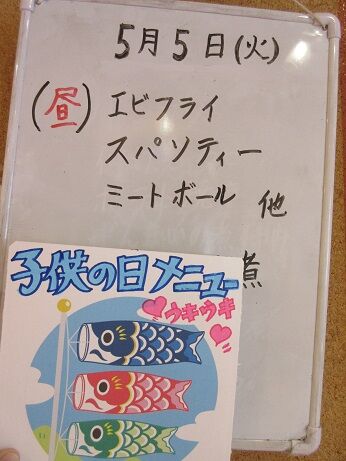 5月5日(火)
(昼) エビフライ
スパソティー
ミートボール 他
煮
子供の日メニュー
ウキウキ